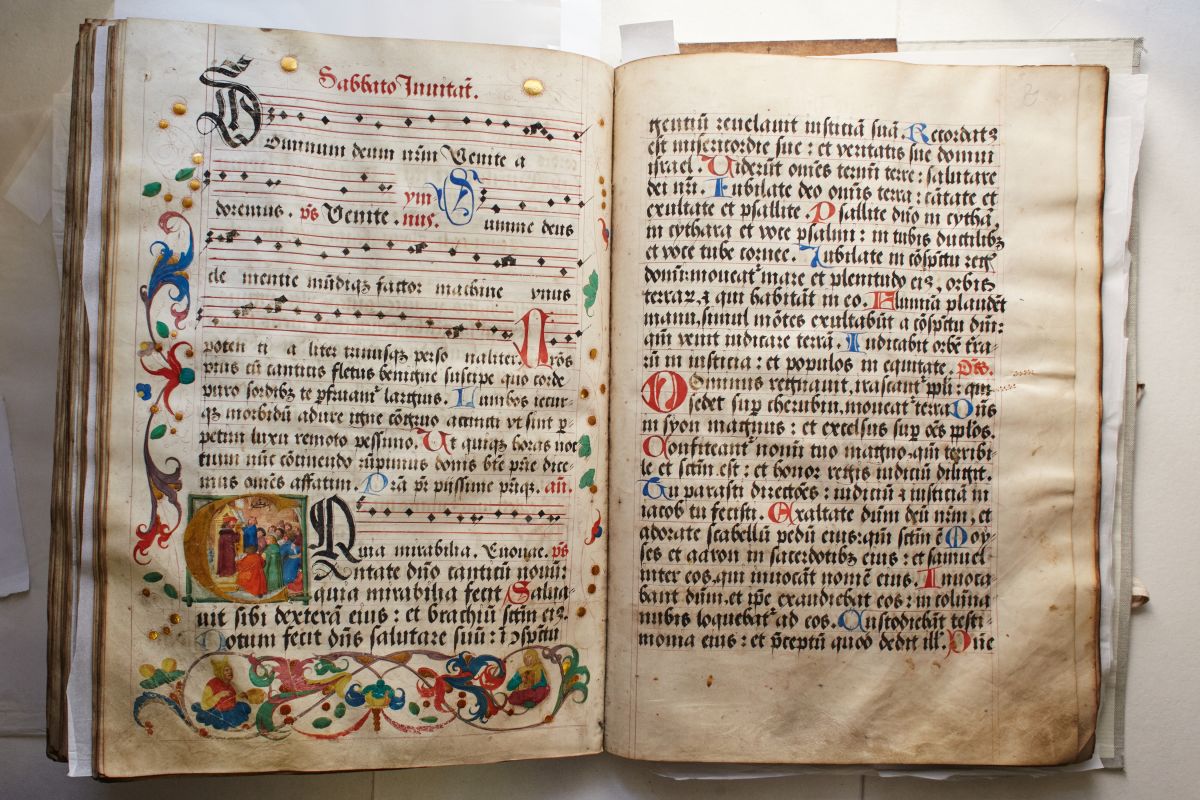 Sabbato Inuitat̄.
Dominum deum nr̄m Venite a
doremus. ps̄ Venite. ymnus. Summe deus
cle mentie mūdiqꝫ factor machine vnus
poten ti a liter trinusqꝫ perso naliter. Nrōs
pius cū canticis fletus benigne suscipe quo corde
puro sordibꝫ te pfruamr̄ largius. Lumbos iecur⸗
qꝫ morbidū adure igne cōgruo accincti vt sint p̱⸗
petim luxu remoto pessimo. Ut quiqꝫ horas noc
tium nūc cōcinendo rūpimus donis btē pr̄ie dite⸗
mur om̄es affatim. Pr̄a pr̄ pijssime pr̄iqꝫ. an̄.
Quia mirabilia. Euouae. ps̄
Cantate dn̄o canticū nouū:
quia mirabilia fecit Salua⸗
uit sibi dexterā eius: et brachiū sctm̄ eiꝰ.
Notum fecit dn̄s salutare suū: ī ↄspctu
gentiū reuelauit iusticiā suā. Recordatꝰ
est misericordie sue: et veritatis sue domui
israel. Uiderūt om̄es termi terre: salutare
dei nr̄i. Iubilate deo om̄is terra: cātate et
exultate et psallite. Psallite dn̄o in cytha⸗
in cythara et voce psalmi: in tubis ductilibꝫ
et voce tube cornee. Iubilate in cōspctu reg̃
domī: moueatr̄ mare et plenitudo eiꝰ, orbis
terraꝝ, ⁊ qui habitāt in eo. Flumīa plaudēt
manu, simul mōtes exultabūt a cōspctu dn̄i:
qm̄ venit iudicare terrā. Iudicabit orbē tra⸗
rū in iusticia: et populos in equitate. ps̄.
Dominus regnauit, irascantr̄ ppli: qui
sedet sup̱ cherubin, moueatr̄ terra. Dn̄s
in syon magnus: et excelsus sup̱ oēs pplos.
Confiteantr̄ nomī tuo magno, qm̄ terribi⸗
le et sctm̄ est: et honor regis iudiciū diligit.
Tu parasti directōes: iudiciū ⁊ iusticiā in
iacob tu fecisti. Exaltate dn̄m deū nr̄m, et
adorate scabellū pedū eius: qm̄ sctm̄ ē Moy⸗
ses et aaron in sacerdotibꝫ eius: et samuel
inter eos, qui inuocāt nomē eius. Inuoca
bant dn̄m, et ip̄e exaudiebat eos: in colūna
nubis loquebatr̄ ad eos. Custodiebāt testi⸗
monia eius: et p̄ceptū quod dedit ill̄. Dn̄e